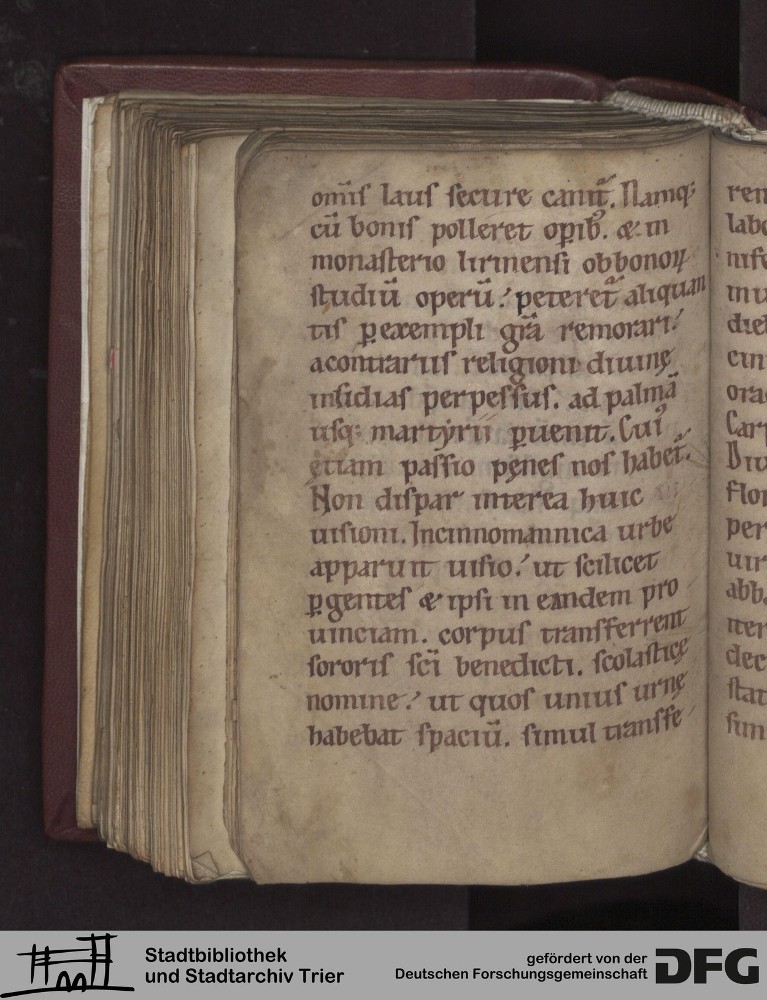 om̅is laus secure canit᷑. Namq;
cu̅ bonis polleret op̲ib᷒. & in
monasterio lirinensi ob bonoꝝ
studiu̅ operu̅. peteret᷑ aliquan
tis ꝑ exempli gr̅a remorari.
a contrariis religioni diuinę
insidias perpessus. ad palma̅
usq; martyrii ꝑuenit. Cui᷒
etiam passio penes nos habet᷑.
Non dispar interea huic
uisioni. In cinnomannica urbe
apparuit uisio. ut scilicet
ꝑgentes & ipsi in eandem pro
uinciam. corpus transferrent
sororis sc̅i benedicti. scolasticę
nomine. ut quos unius urnę
habebat spaciu̅. simul transfe
ren
labo
nise
inu
die
cin
ora
Car
Diu
flor
per
uir
abb
iter
dec
stat
sim
Stadtbibliothek
und Stadtarchiv Trier
gefördert von der
Deutschen Forschungsgemeinschaft
DFG